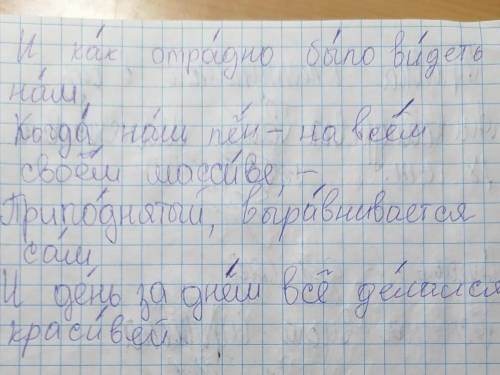 И ка́к отра́дно бы́ло ви́деть
на́м,
Когда́ на́ш лён – на всём
своём масси́ве, –
Припо́днятый, выра́внивается
са́м
И де́нь за днём всё де́лался
краси́вей.